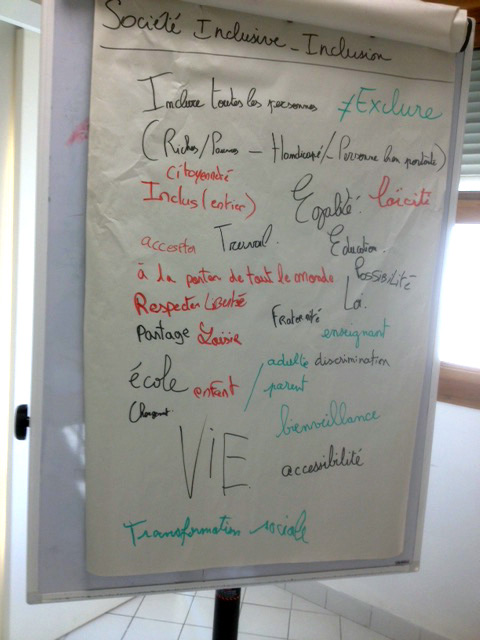 Société Inclusive - Inclusion
Inclure toutes les personnes ≠ Exclure
(Riches/Pauvres - Handicapé/- Personne bien portante)
citoyenneté
Inclus (entier) Egalité. laïcité
accepter Travail. Education.
à la portée de tout le monde. Possibilité
Respecter Liberté Loi.
Fraternité
Partage Loisir enseignant
école enfant / adulte discrimination
parent
bienveillance
VIE accessibilité
Transformation sociale